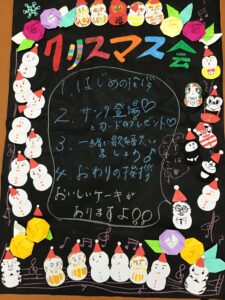 クリスマス会
1. はじめの挨拶
2. サンタ登場♡
とカードのプレゼント♡
3. 一緒に歌を歌い
ましょう♪
4. おわりの挨拶
おいしいケーキが
ありますよ